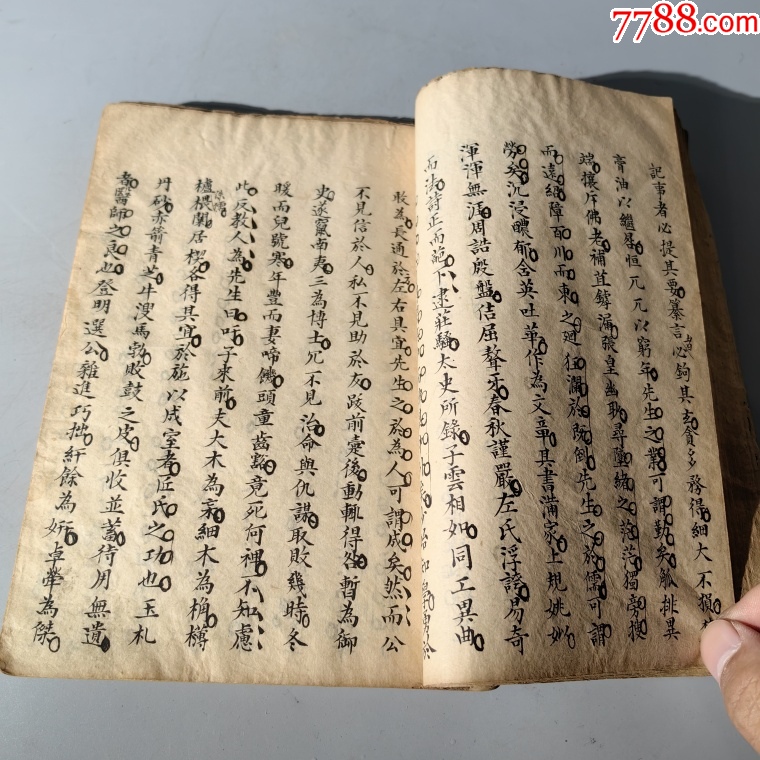 7788.com
记事者必提其要纂言者必鉤其玄貪多務得細大不損
膏油以繼晷恒兀兀以窮年先生之業可謂勤矣觝排異
端攘斥佛老補苴罅漏張皇幽眇尋墜緒之茫茫獨旁搜
而遠紹障百川而東之廻狂瀾於既倒先生之於儒可謂
勞矣沉浸醲郁含英吐華作為文章其書滿家上規姚姒
渾渾無涯周誥殷盤佶屈聱牙春秋謹嚴左氏浮誇易奇
而法詩正而葩下逮莊騷太史所錄子雲相如同工異曲
敢為長通於左右具宜先生之於為人可謂成矣然而公
不見信於人私不見助於友跋前疐後動輒得咎暫為御
史遂竄南夷三為博士冗不見治命與仇謀取敗幾時冬
暖而兒號寒年豐而妻啼饑頭童齒豁竟死何裡不知慮
此反教人為先生曰吁子來前夫大木為杗細木為桷欂
櫨侏儒椳闑居楔各得其宜於施以成室者匠氏之功也玉札
丹砂赤箭青芝牛溲馬勃敗鼓之皮俱收並蓄待用無遺
者醫師之良也登明選公雜進巧拙紆餘為妍卓犖為傑